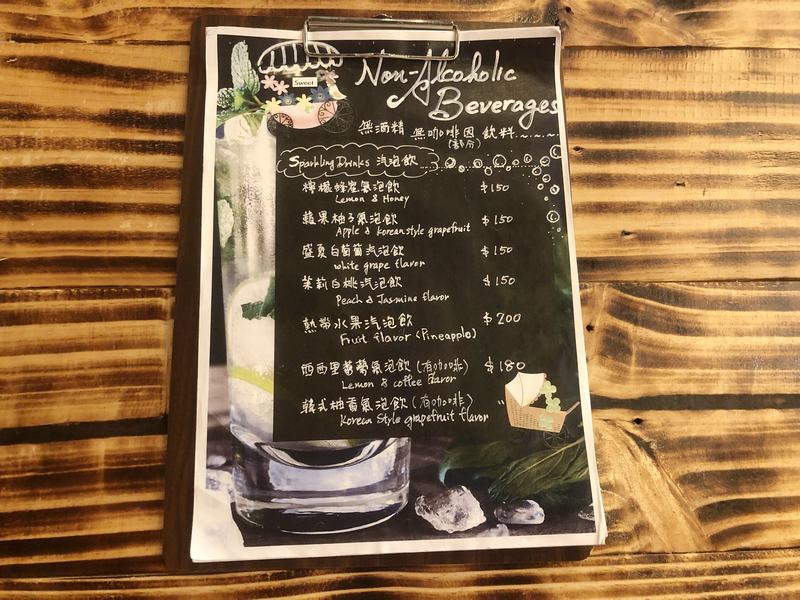 Sweet
Non-Alcoholic
Beverages
無酒精 無咖啡因 飲料~~~
(部分)
Sparkling Drinks 汽泡飲
檸檬蜂蜜氣泡飲 $150
Lemon & Honey
蘋果柚子氣泡飲 $150
Apple & Korean style grapefruit
盛夏白葡萄汽泡飲 $150
white grape flavor
茉莉白桃汽泡飲 $150
Peach & Jasmine flavor
熱帶水果汽泡飲 $200
Fruit flavor (Pineapple)
西西里氣泡飲(有咖啡) $180
Lemon & coffee flavor
韓式柚香氣泡飲(有咖啡) "
Korean Style grapefruit flavor